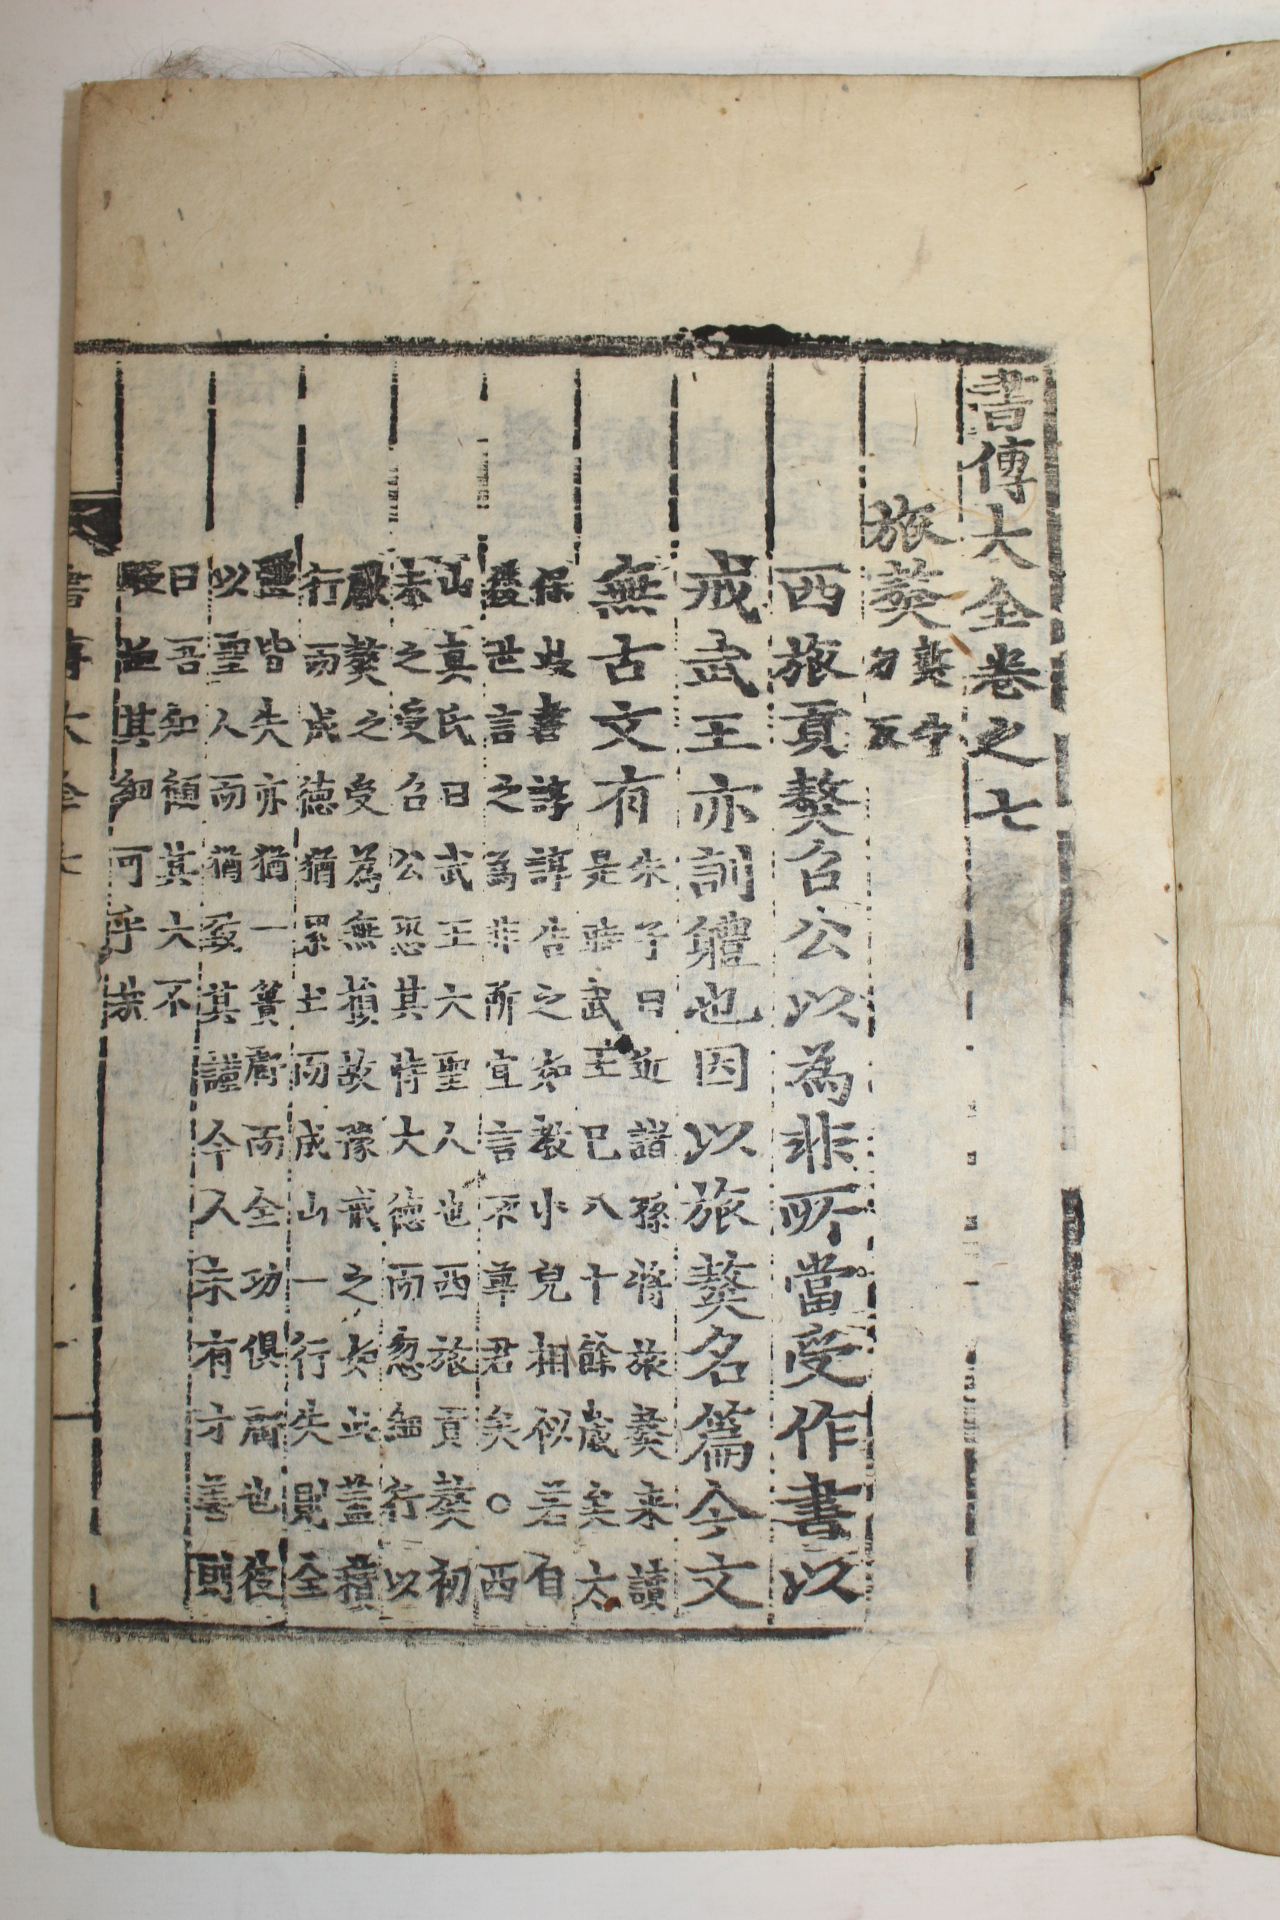 書傳大全卷之七
旅獒
獒牛
刀反
西旅貢獒召公以為非所當受作書以
戒武王亦訓體也因以旅獒名篇今文
無古文有
朱子曰近諸孫將旅獒來讀
是時武王已八十餘歲矣太
保此書諄諄告之如教小兒相似若自
後世言之為非所宜言不尊君矣○西
山真氏曰武王大聖人也西旅貢獒初
未之受召公恐其恃大德而忽細行以
厥獒之受為無損故豫戒之如此蓋積
行而成德猶累土而成山一行失則全
皆失亦猶一簣虧而全功俱虧也彼
以聖人而猶致其謹今人未有寸善則
曰吾知顧其大不
暇恤其細可乎哉
書傳大全七